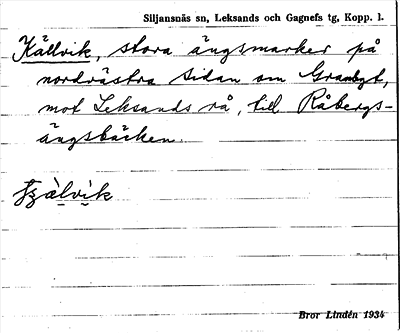 Siljansnäs sn, Leksands och Gagnefs tg, Kopp. l.
Källvik, stora ängsmarker på
nordvästra sidan om Grambyt,
mot Leksands rå, till Råbergs-
ängsbäcken.
Bror Lindén 1934